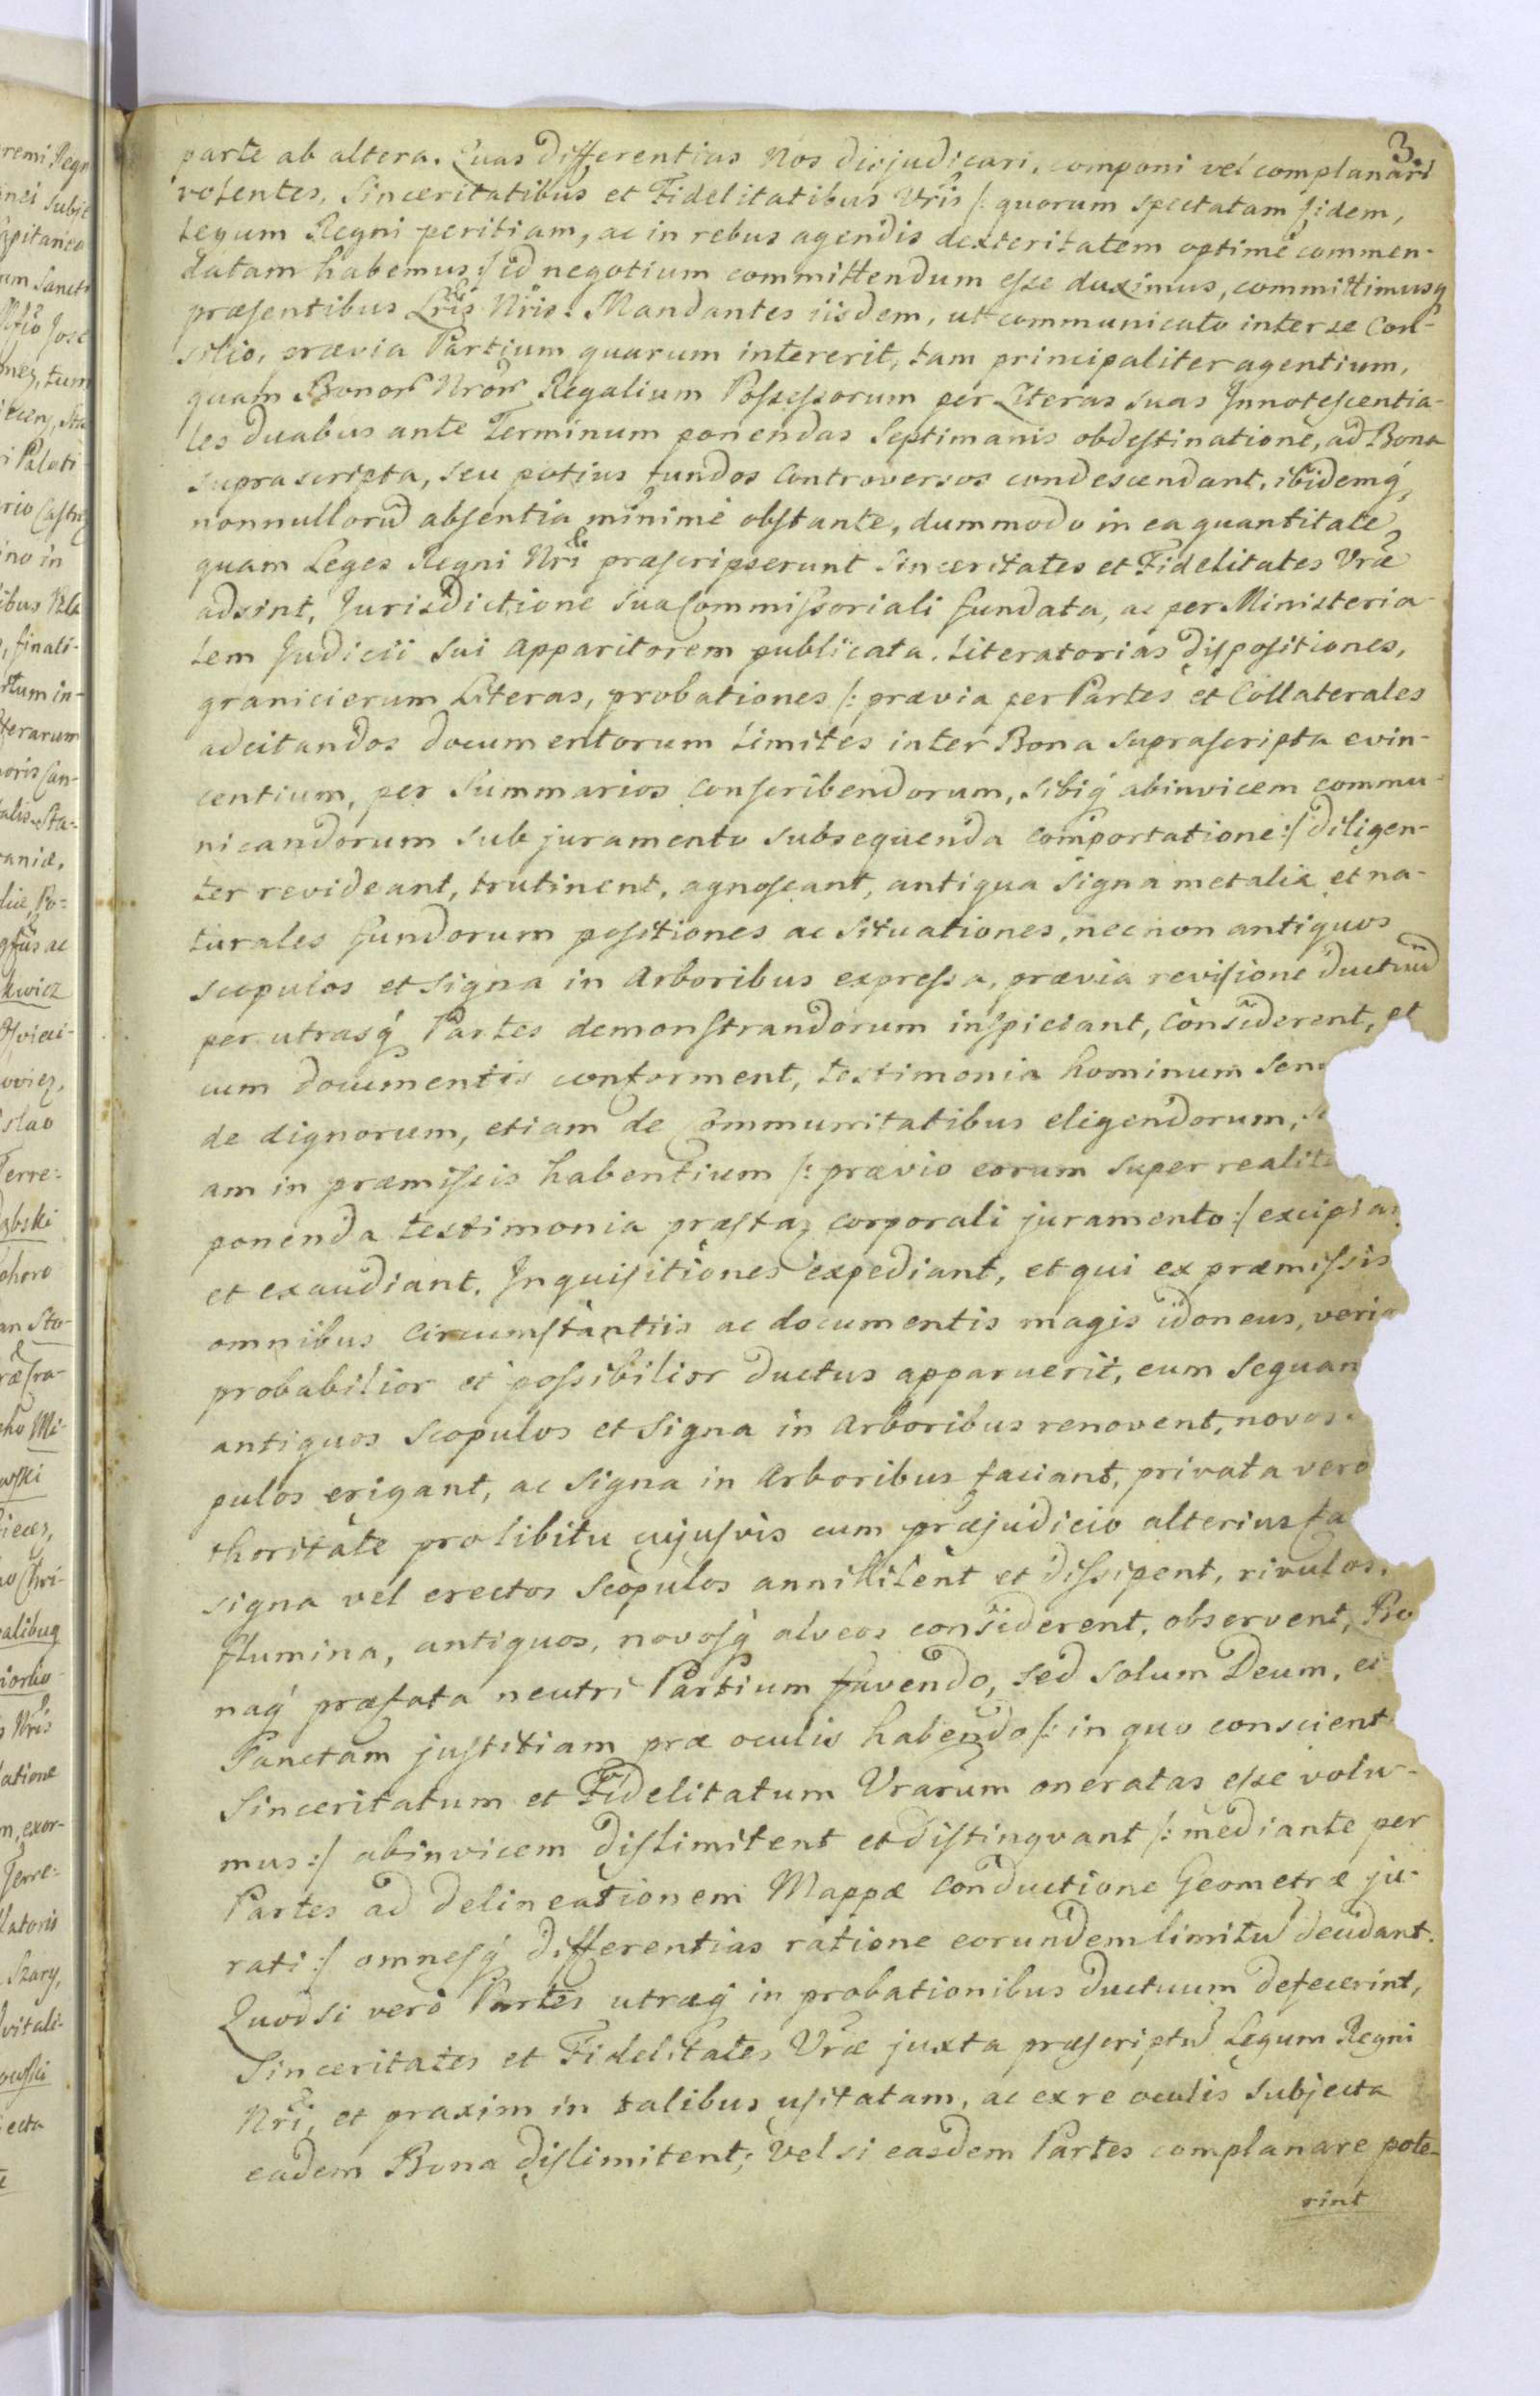 3.
parte ab altera. Quas differentias Nos disjudicari, componi vel complanari
volentes, Sinceritatibus et Fidelitatibus Vris /: quorum spectatam fidem,
legum Regni peritiam, ac in rebus agendis dexteritatem optimè commen-
datam habemus :/ id negotium committendum esse duximus, committimusq
præsentibus Lris Nris. Mandantes iisdem, ut communicato inter se Con-
silio, prævia Partium quarum intererit, tam principaliter agentium,
quam Bonor Nror Regalium Possessorum per Literas suas Innotescentia-
les duabus ante Terminum ponendas Septimanis obdestinatione, ad Bona
suprascripta, seu potius fundos Controversos condescendant, ibidemq́
nonnullorũ absentia minimè obstante, dummodo in ea quantitate,
quam Leges Regni Nri præscripserunt Sinceritates et Fidelitates Vræ
adsint, Jurisdictione sua Commissoriali fundata, ac per Ministeria-
lem Judicii sui Apparitorem publicata. Literatorias dispositiones,
granicierum Literas, probationes /: prævia per Partes et Collaterales
adcitandos documentorum limites inter Bona suprascripta evin-
centium, per Summarios conscribendorum, sibiq́ abinvicem commu-
nicandorum sub juramento subsequenda comportatione :/ diligen-
ter revideant, trutinent, agnoscant, antiqua signa metalia et na-
turales fundorum positiones ac situationes, nec non antiquos
scopulos et signa in Arboribus expressa, prævia revisione ductuũ
per utrasq́ Partes demonstrandorum inspiciant, considerent, et
cum documentis conforment, testimonia hominum sen
de dignorum, etiam de Communitatibus eligendorum, s
am in præmissis habentium /: prævio eorum super realit
ponenda testimonia præstaz corporali juramento :/ excipia
et exaudiant. Inquisitiones expediant, et qui ex præmissis
omnibus Circumstantiis ac documentis magis idoneus, veri
probabilior et possibilior ductus apparuerit, eum sequan
antiquos scopulos et signa in Arboribus renovent, novos
pulos erigant, ac signa in Arboribus faciant, privata vero
thoritate prolibitu cujusvis cum præjudicio alterius fa
signa vel erectos scopulos annihilent et dissipent, rivulos,
flumina, antiquos, novosq́ alveos considerent, observent, Bo
naq́ præfata neutri Partium favendo, sed solum Deum, et
Sanctam justitiam præ oculis habendo /: in quo conscient
Sinceritatum et Fidelitatum Vrarum oneratas esse volu-
mus :/ abinvicem dislimitent et distingvant /: mediante per
Partes ad delineationem Mappæ conductione Geometræ ju-
rati :/ omnesq́ differentias ratione eorundem limitũ decidant.
Quodsi verò Partes utræq́ in probationibus ductuum defecerint,
Sinceritates et Fidelitates Vræ juxta præscriptũ Legum Regni
Nri, et praxim in talibus usitatam, ac ex re oculis subjecta
eadem Bona dislimitent; Vel si easdem Partes complanare pote-
rint